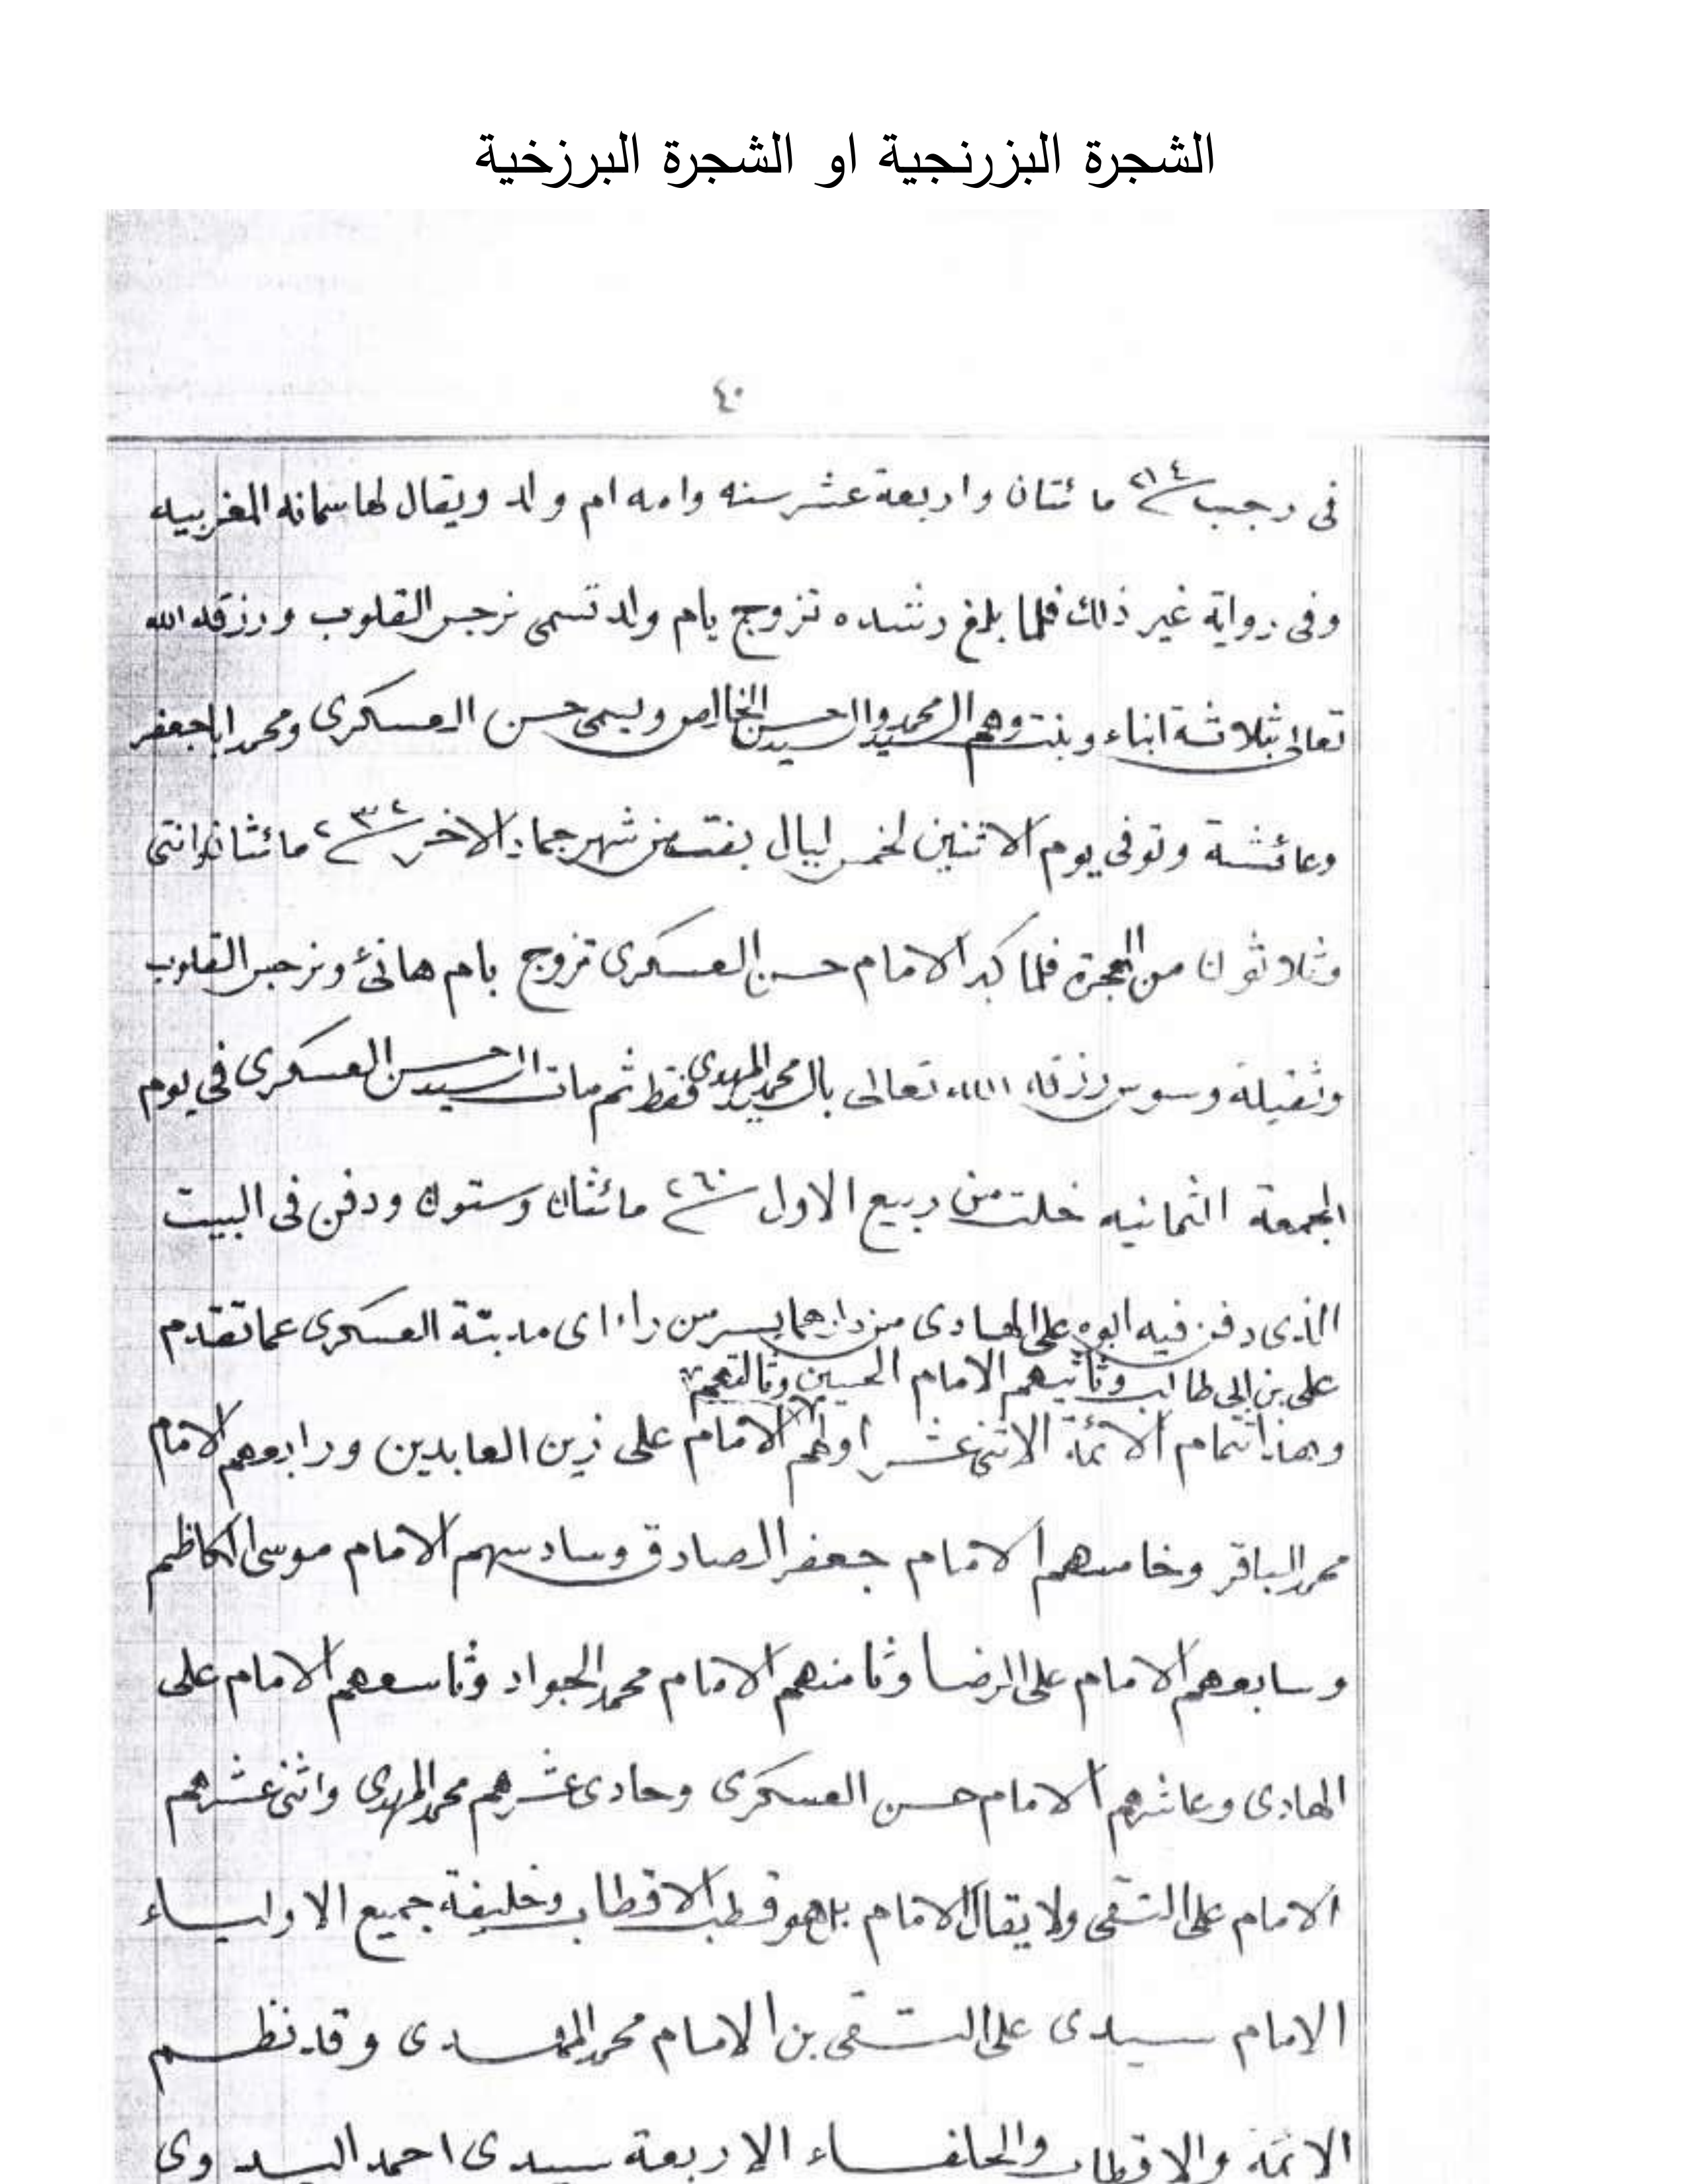 الشجرة البزرنجية او الشجرة البرزخية
٤٠
فى رجب ٢١٤ مائتان واربعة عشر سنه وامه ام ولد ويقال لها سمانه المغربيه
وفى رواية غير ذلك فلما بلغ رشده تزوج بام ولد تسمى نرجس القلوب ورزقه الله
تعالى بثلاثة ابناء وبنت وهم السيد محمد والسيد حسن الخالص ويسمى حسن العسكرى ومحمد اباجعفر
وعائشة وتوفى يوم الاثنين لخمس ليال بقت من شهر جماد الاخر ٢٣٢ مائتان واثنى
وثلاثون من الهجرة فلما كبر الامام حسن العسكرى تزوج بام هانئ ونرجس القلوب
وثقيلة وسوس رزقه الله تعالى بال محمد المهدى فقط ثم مات السيد حسن العسكرى في يوم
الجمعة الثمانيه خلت من ربيع الاول ٢٦٠ مائتان وستون ودفن فى البيت
الذى دفن فيه ابوه على الهادى من دارهما بسر من راء اى مدينة العسكرى عما تقدم
على بن ابى طالب وثانيهم الامام الحسين وثالثهم
وهذا تمام الائمة الاثنى عشر اولهم الامام على زين العابدين ورابعهم الامام
محمد الباقر وخامسهم الامام جعفر الصادق وسادسهم الامام موسى الكاظم
وسابعهم الامام على الرضا وثامنهم الامام محمد الجواد وتاسعهم الامام على
الهادى وعاشرهم الامام حسن العسكرى وحادى عشرهم محمد المهدى واثنى عشرهم
الامام على التقى ولا يقال الامام بل هو قطب الاقطاب وخليفة جميع الاولياء
الامام سيدى على التقى بن الامام محمد المهدى وقد نظم
الائمة والاقطاب والخلفاء الاربعة سيدى احمد البدوى